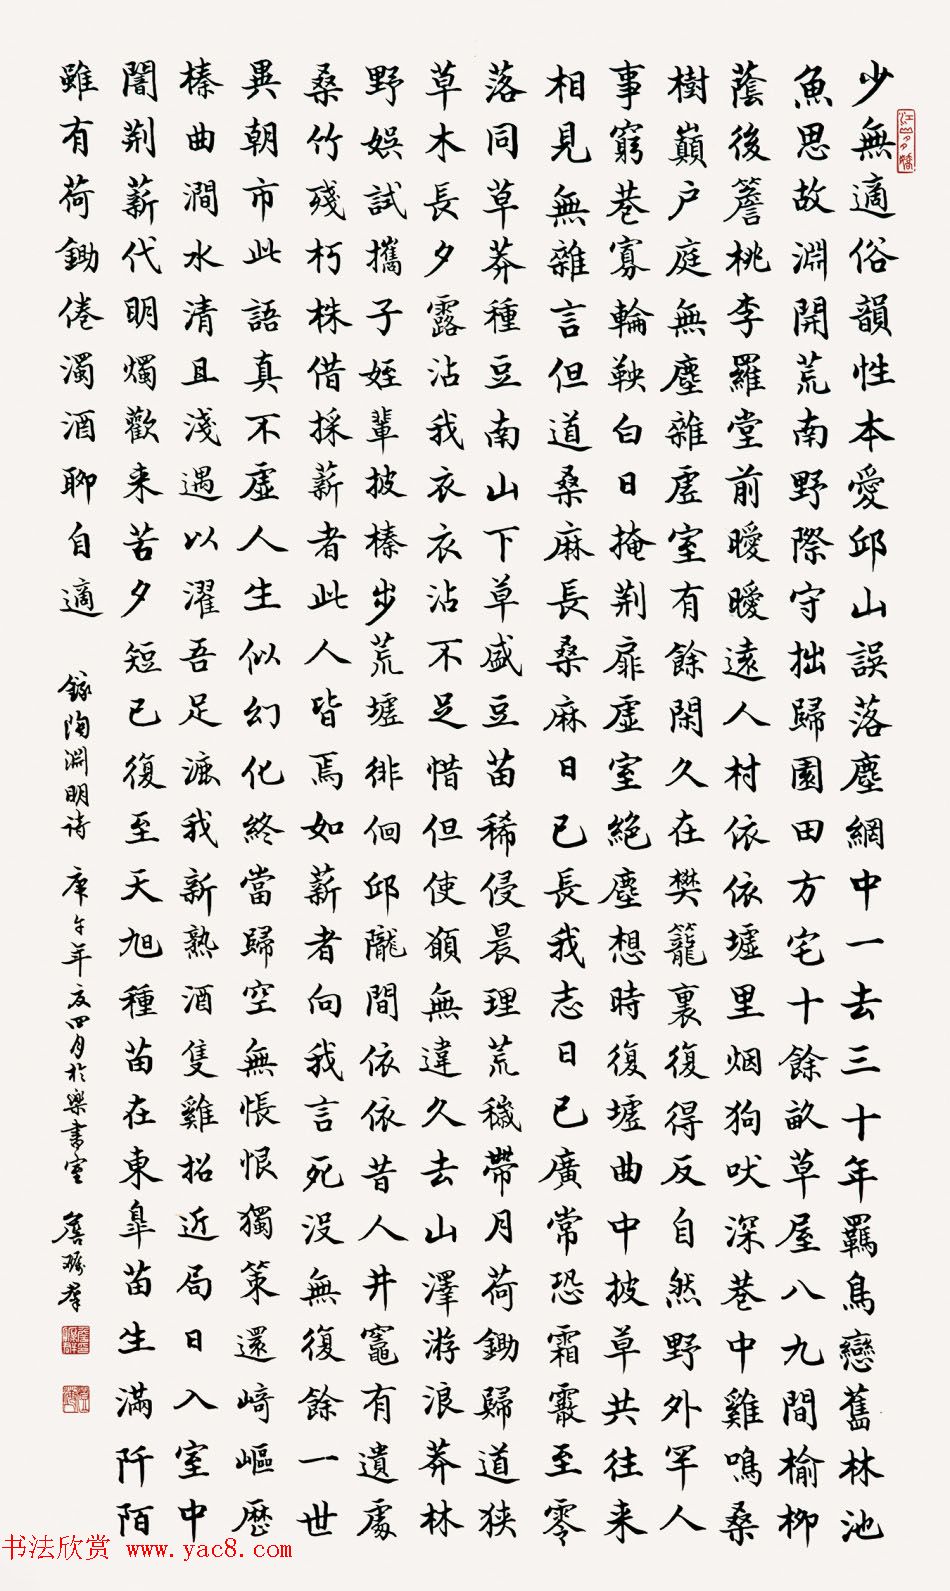 少無適俗韻性本愛邱山誤落塵網中一去三十年羈鳥戀舊林池
魚思故淵開荒南野際守拙歸園田方宅十餘畝草屋八九間榆柳
蔭後簷桃李羅堂前曖曖遠人村依依墟里烟狗吠深巷中雞鳴桑
樹巔户庭無塵雜虛室有餘閑久在樊籠裏復得反自然野外罕人
事窮巷寡輪鞅白日掩荆扉虛室絕塵想時復墟曲中披草共往来
相見無雜言但道桑麻長桑麻日已長我志日已廣常恐霜霰至零
落同草莽種豆南山下草盛豆苗稀侵晨理荒穢帶月荷鋤歸道狹
草木長夕露沾我衣衣沾不足惜但使願無違久去山澤游浪莽林
野娛試攜子姪輩披榛步荒墟徘徊邱隴間依依昔人井竈有遺處
桑竹殘朽株借採薪者此人皆焉如薪者向我言死没無復餘一世
異朝市此語真不虛人生似幻化終當歸空無悵恨獨策還崎嶇歷
榛曲澗水清且淺遇以濯吾足漉我新熟酒隻雞招近局日入室中
闇荆薪代明燭歡来苦夕短已復至天旭種苗在東皋苗生滿阡陌
雖有荷鋤倦濁酒聊自適
錄陶淵明诗 庚午年夏四月於樂書室
书法欣赏 www.yac8.com